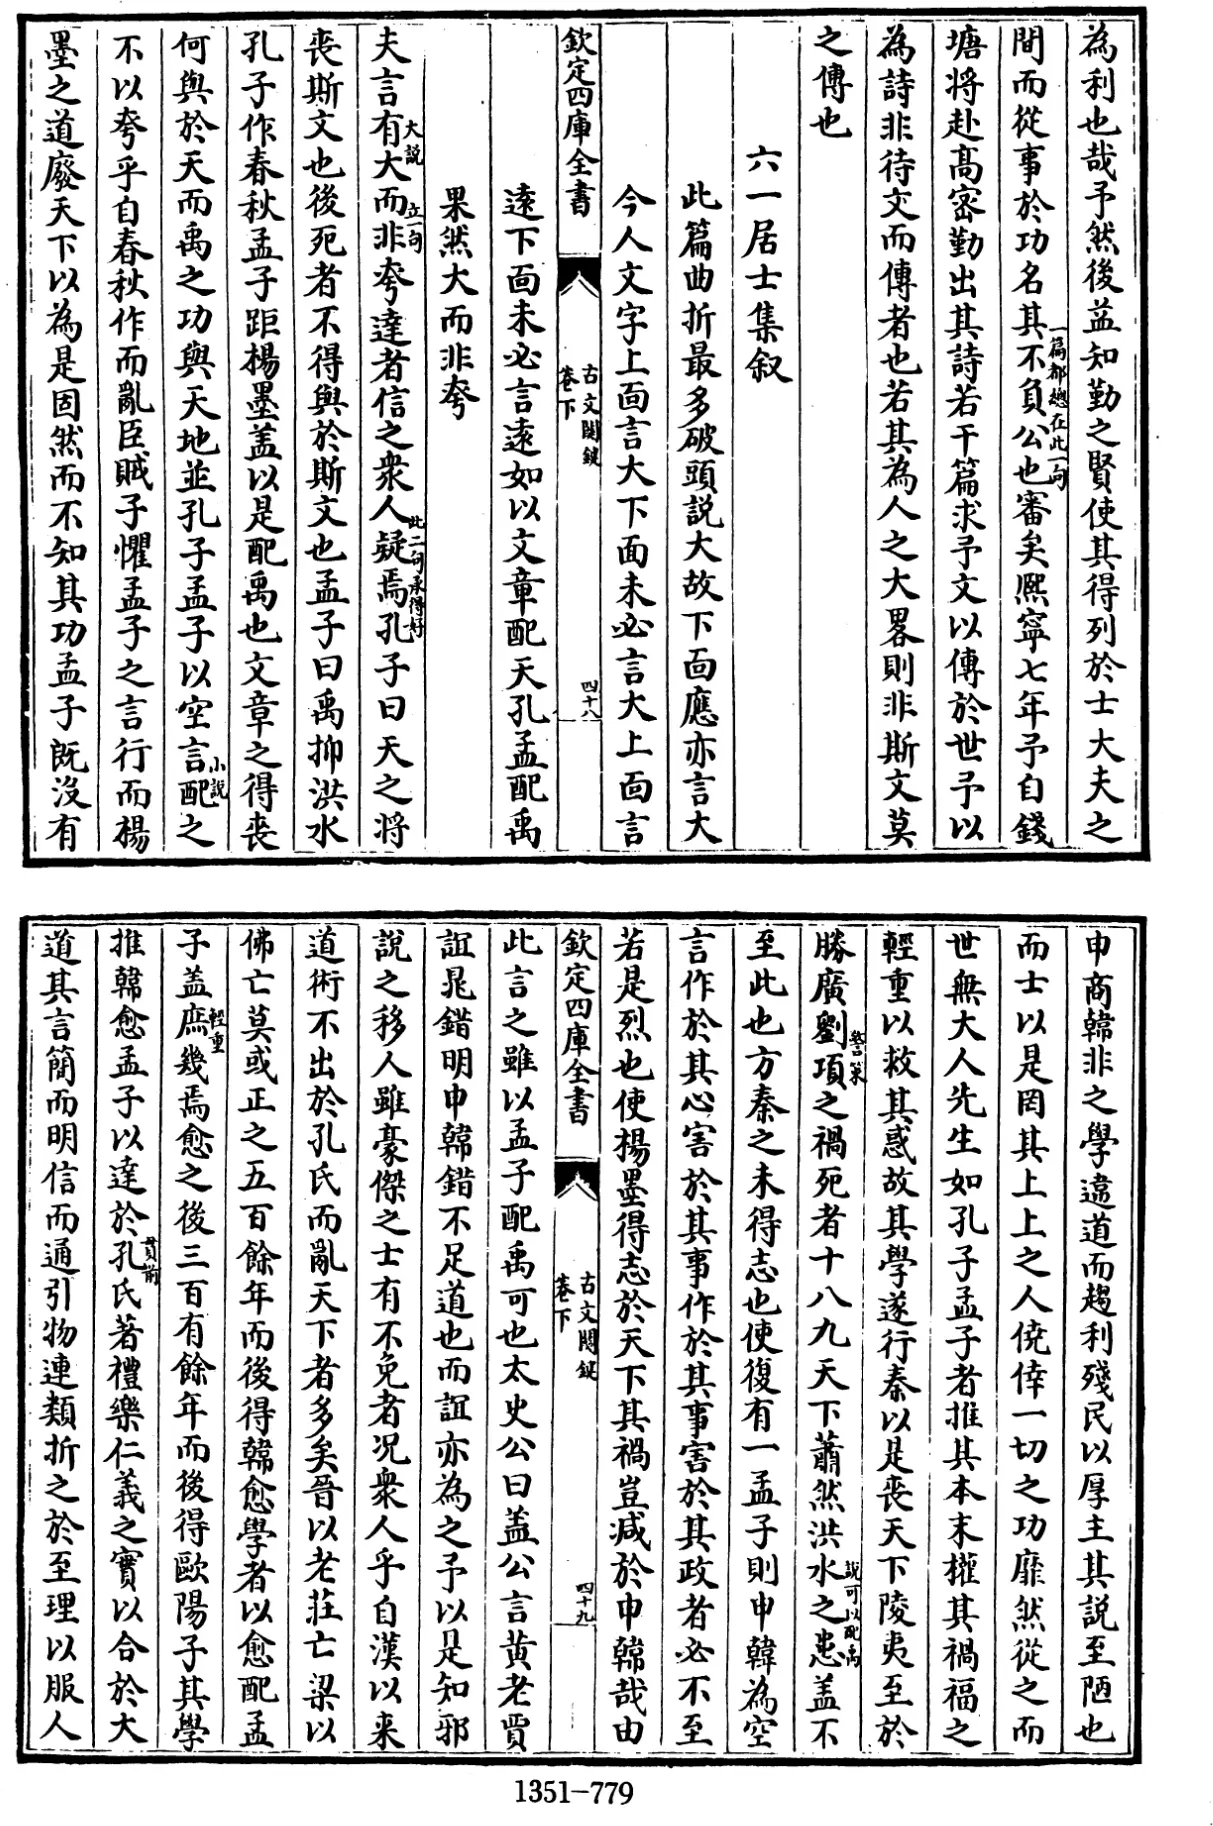 為利也哉予然後益知勤之賢使其得列於士大夫之
間而從事於功名其不負公也審矣熈寧七年予自錢
一篇都總在此一句
塘將赴髙密勤出其詩若干篇求予文以傳於世予以
為詩非待文而傳者也若其為人之大畧則非斯文莫
之傳也
六一居士集叙
此篇曲折最多破頭説大故下面應亦言大
今人文字上面言大下面未必言大上面言
欽定四庫全書
古文闗鍵
卷下
四十八
逺下面未必言逺如以文章配天孔孟配禹
果然大而非夸
夫言有大而非夸達者信之衆人疑焉孔子曰天之將
大説
立一句
此二句承得好
喪斯文也後死者不得與於斯文也孟子曰禹抑洪水
孔子作春秋孟子距楊墨盖以是配禹也文章之得喪
何與於天而禹之功與天地並孔子孟子以空言配之
小説
不以夸乎自春秋作而亂臣賊子懼孟子之言行而楊
墨之道廢天下以為是固然而不知其功孟子既沒有
申商韓非之學違道而趨利殘民以厚主其説至陋也
而士以是罔其上上之人僥倖一切之功靡然從之而
世無大人先生如孔子孟子者推其本末權其禍福之
輕重以救其惑故其學遂行秦以是喪天下陵夷至於
勝廣劉項之禍死者十八九天下蕭然洪水之患盖不
警策
説可以配禹
至此也方秦之未得志也使復有一孟子則申韓為空
言作於其心害於其事作於其事害於其政者必不至
若是烈也使楊墨得志於天下其禍豈减於申韓哉由
欽定四庫全書
古文闗鍵
卷下
四十九
此言之雖以孟子配禹可也太史公曰盖公言黄老賈
誼晁錯明申韓錯不足道也而誼亦為之予以是知邪
說之移人雖豪傑之士有不免者况衆人乎自漢以来
道術不出於孔氏而亂天下者多矣晉以老莊亡梁以
佛亡莫或正之五百餘年而後得韓愈學者以愈配孟
子盖庶幾焉愈之後三百有餘年而後得歐陽子其學
輕重
推韓愈孟子以達於孔氏著禮樂仁義之實以合於大
貫前
道其言簡而明信而通引物連類折之於至理以服人
1351-779